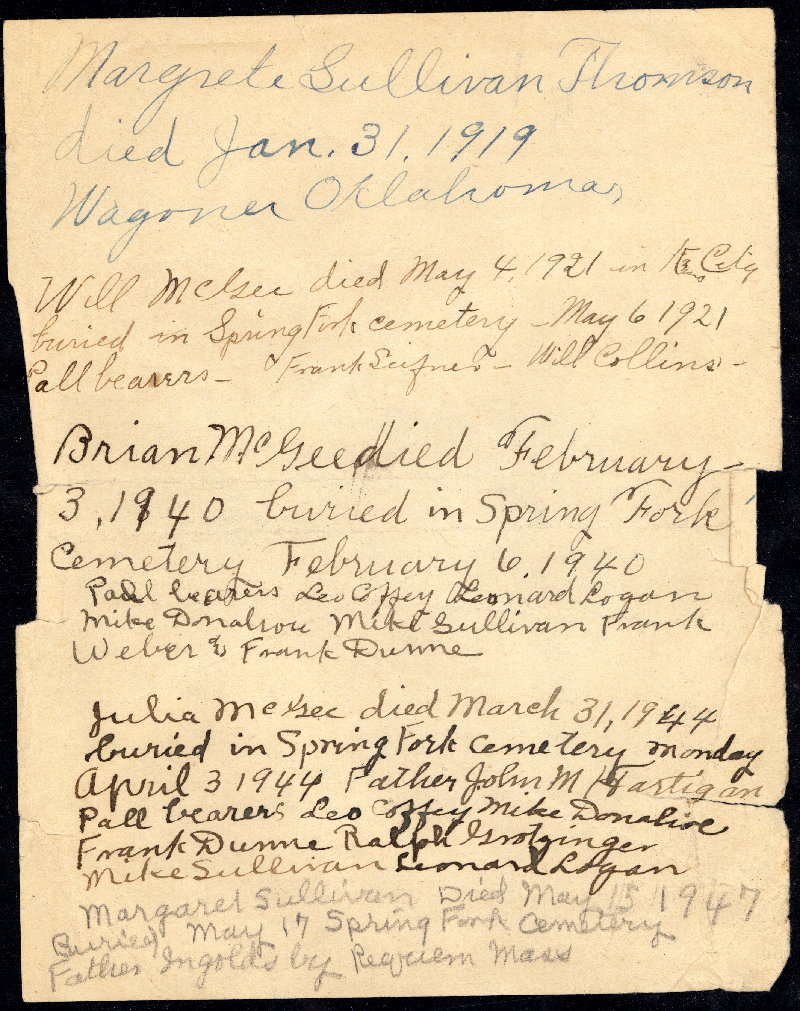 Margrete Sullivan Thomson
died Jan. 31. 1919
Wagoner Oklahoma,
Will McGee died May 4, 1921 in Ks. City
buried in Spring Fork cemetery - May 6 1921
Pall bearers - Frank Seifner - Will Collins -
Brian McGee died February
3, 1940 buried in Spring Fork
Cemetery February 6, 1940
Pall bearers Leo Coffey Leonard Logan
Mike Donahou Mike Sullivan Frank
Weber & Frank Dunne
Julia McGee died March 31, 1944
buried in Spring Fork cemetery monday
April 3 1944 Father John M Hartigan
Pall bearers Leo Coffey Mike Donahoe
Frank Dunne Ralph Grotzinger
Mike Sullivan Leonard Logan
Margaret Sullivan Died May 15 1947
Buried May 17 Spring Fork Cemetery
Father Ingolds by Requiem Mass